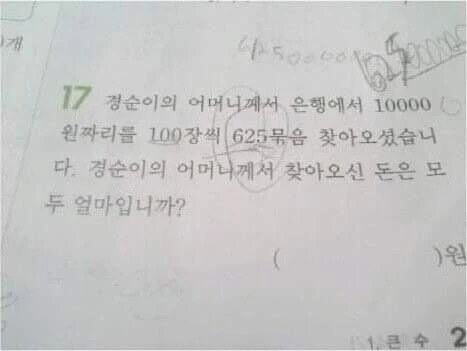 )개
17 경순이의 어머니께서 은행에서 10000
원짜리를 100장씩 625묶음 찾아오셨습니
다. 경순이의 어머니께서 찾아오신 돈은 모
두 얼마입니까?
( )원
1. 큰 수 2